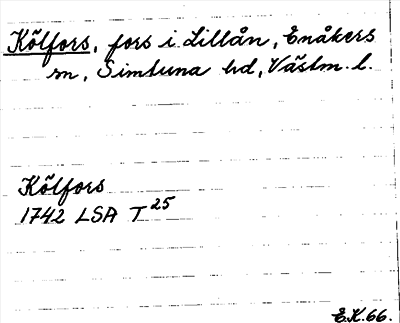 Kölfors, fors i Lillån, Enåkers
sn, Simtuna hd, Västm. l.
Kölfors
1742 LSA T25
E.K.66.